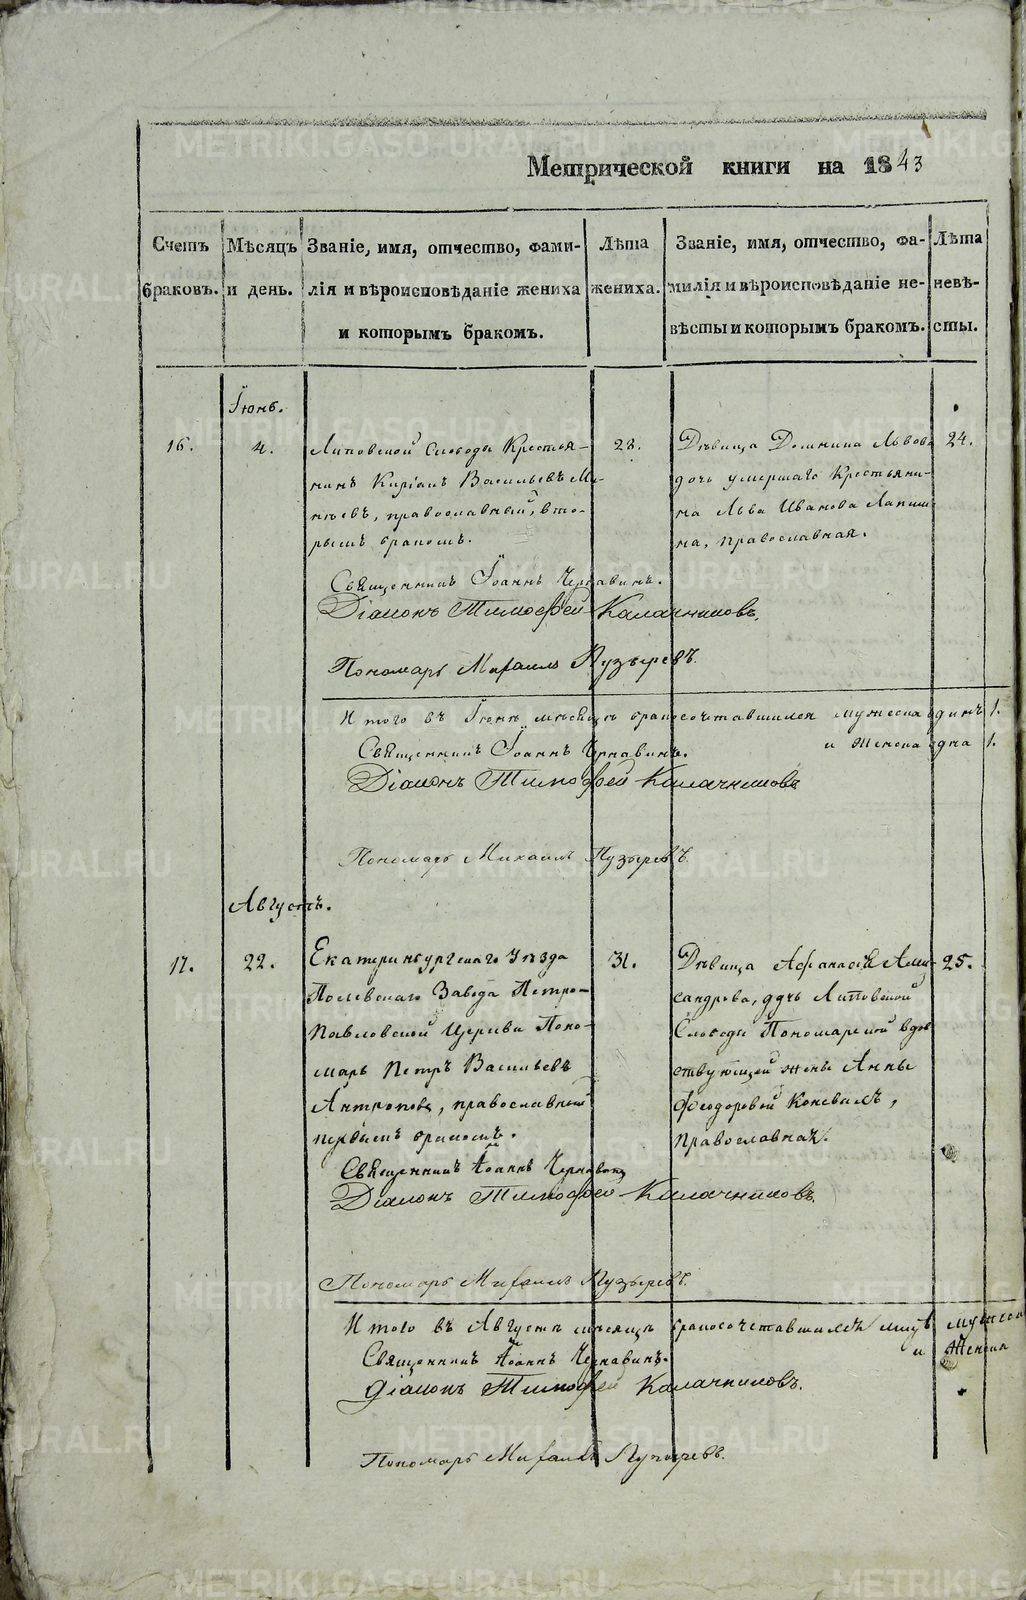 Метрической книги на 1843
Счетъ браковъ.
Мѣсяцъ и день.
Званіе, имя, отчество, фами-
лія и вѣроисповѣданіе жениха
и которымъ бракомъ.
Лѣта жениха.
Званіе, имя, отчество, фа-
милія и вѣроисповѣданіе не-
вѣсты и которымъ бракомъ.
Лѣта невѣ-
сты.
Іюнь.
16.
4.
Липовской Слободы Крестья-
нинъ Киріакъ Васильевъ Ми-
нѣевъ, православный, вто-
рымъ бракомъ.
28.
Дѣвица Домнина Львова
дочь умершаго Крестьяни-
на Льва Иванова Лапши-
на, православная.
24.
Священникъ Іоаннъ Чернавинъ.
Діаконъ Тимофей Калачниковъ.
Пономарь Михаилъ Пузыревъ.
Итого въ Іюнѣ мѣсяцѣ бракосочетавшихся мужеска одинъ 1.
и женска одна 1.
Священникъ Іоаннъ Чернавинъ.
Діаконъ Тимофей Калачниковъ
Пономарь Михаилъ Пузыревъ
Августъ.
17.
22.
Екатеринбургскаго Уѣзда
Полевскаго Завода Петро-
Павловской Церкви Поно-
марь Петръ Васильевъ
Антроповъ, православный
первымъ бракомъ.
31.
Дѣвица Афанасія Алек-
сандрова, дочь Липовской
Слободы Пономарской вдов
ствующей жены Анны
Феодоровой Коневыхъ,
православная.
25.
Священникъ Іоаннъ Чернавинъ
Діаконъ Тимофей Калачниковъ
Пономарь Михаилъ Пузыревъ.
Итого въ Августѣ мѣсяцѣ бракосочетавшихся мужеска
и женска
Священникъ Іоаннъ Чернавинъ.
Діаконъ Тимофей Калачниковъ.
Пономарь Михаилъ Пузыревъ.
METRIKI.GASO-URAL.RU